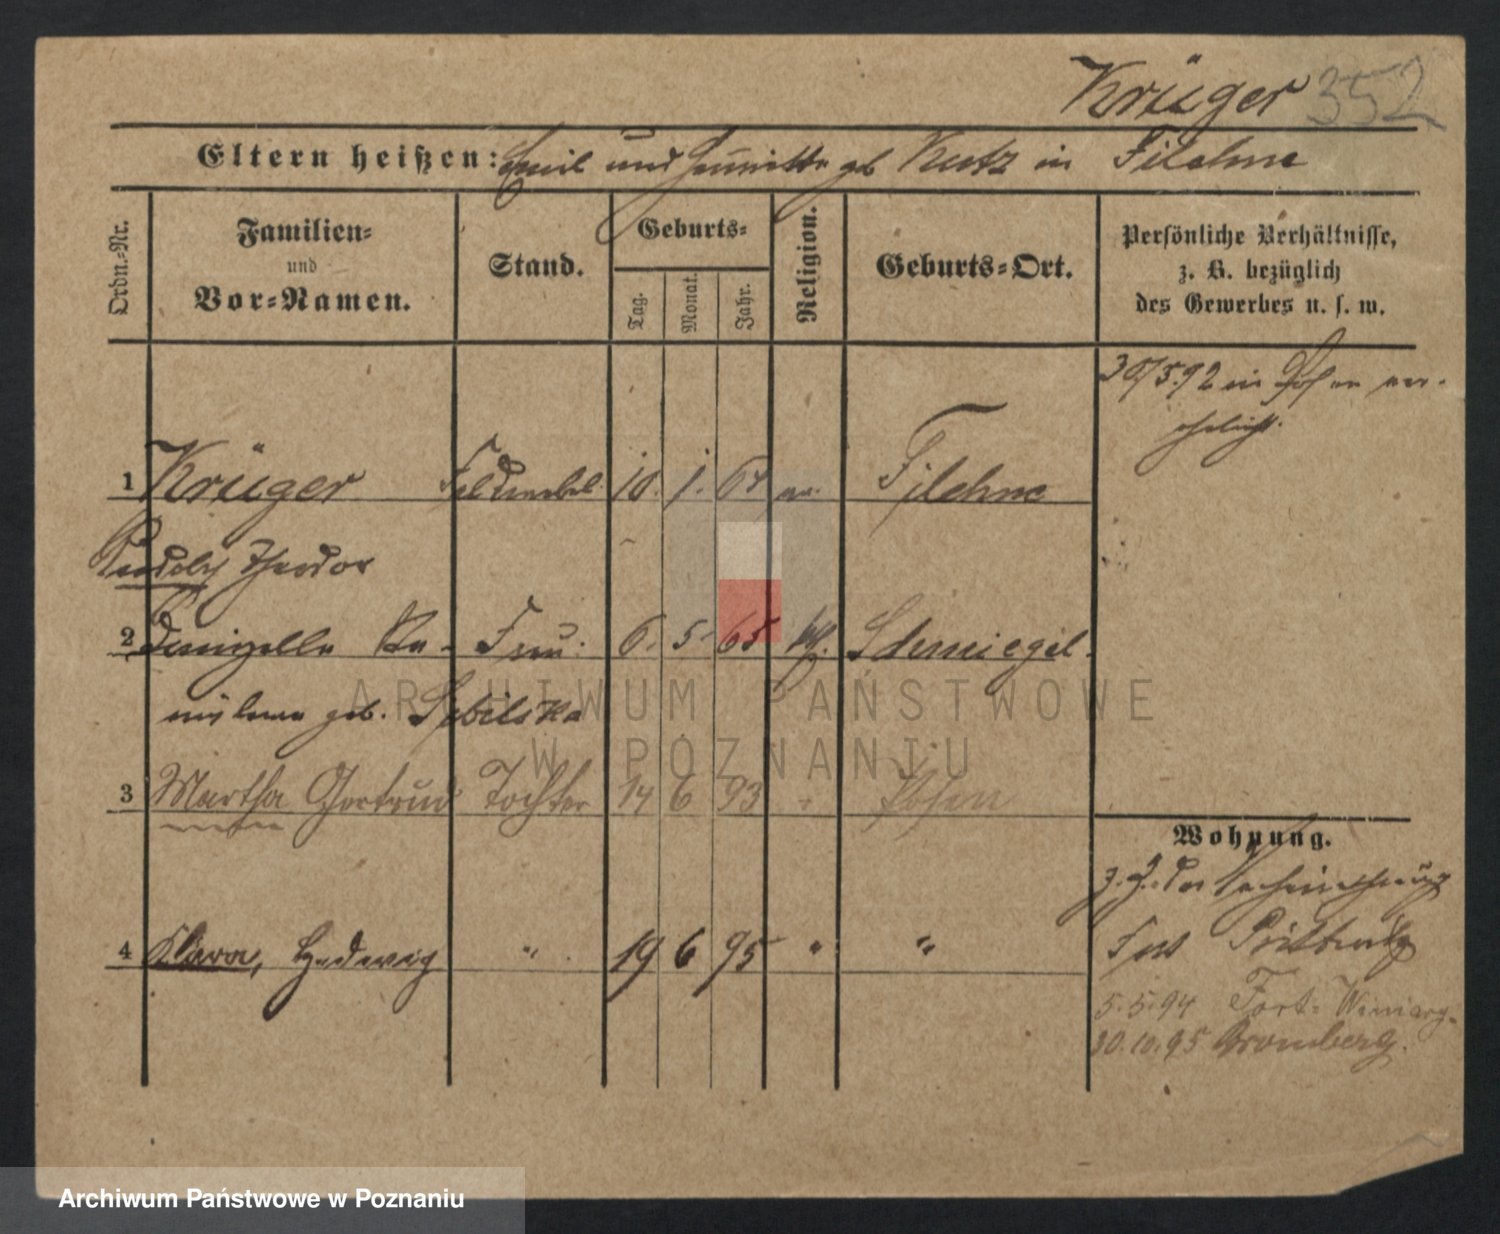 Krüger 352
Eltern heißen: Emil und Henriette gb Kutz in Filehne
Ordn.-Nr.
Familien-
und
Vor-Namen.
Stand.
Geburts-
Tag.
Monat.
Jahr.
Religion.
Geburts-Ort.
Persönliche Verhältnisse,
z. B. bezüglich
des Gewerbes u. s. w.
30/5.92 in Posen ver-
ehelicht.
1 Krüger Feldwebel 10. 1. 64 ev. Filehne
Rudolf Theodor
2 Frau. 6. 5. 65 kth. Schmiegel.
geb. Sobilska
3 Martha Gertrud Tochter 14 6 93 " Posen
4 Klara, Hedwig " 19 6 95 " "
Wohnung.
z. Z. der
Fort Prittwitz
5.5.94 Fort. Winiary.
30.10.95 Bromberg.
ARCHIWUM PAŃSTWOWE
W POZNANIU
Archiwum Państwowe w Poznaniu